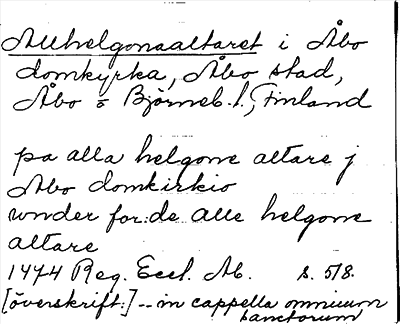 Allhelgonaaltaret i Åbo
domkyrka, Åbo stad,
Åbo o Björneb. l., Finland
pa alla helgone altare j
Åbo domkirkio
wnder for:de alle helgone
altare
1474 Reg. Eccl. Ab. s. 518.
[överskrift:] -- in cappella omnium
sanctorum